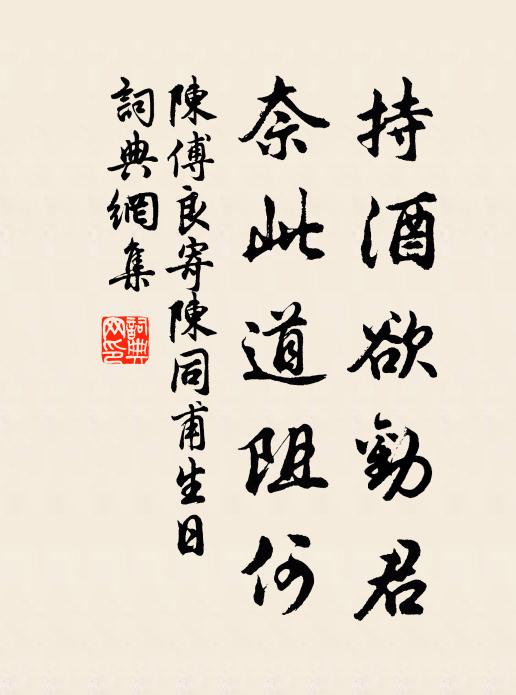 持酒欲勸君
奈此道阻何
陳傅良寄陳同甫生日
詞典網集
詞典网印